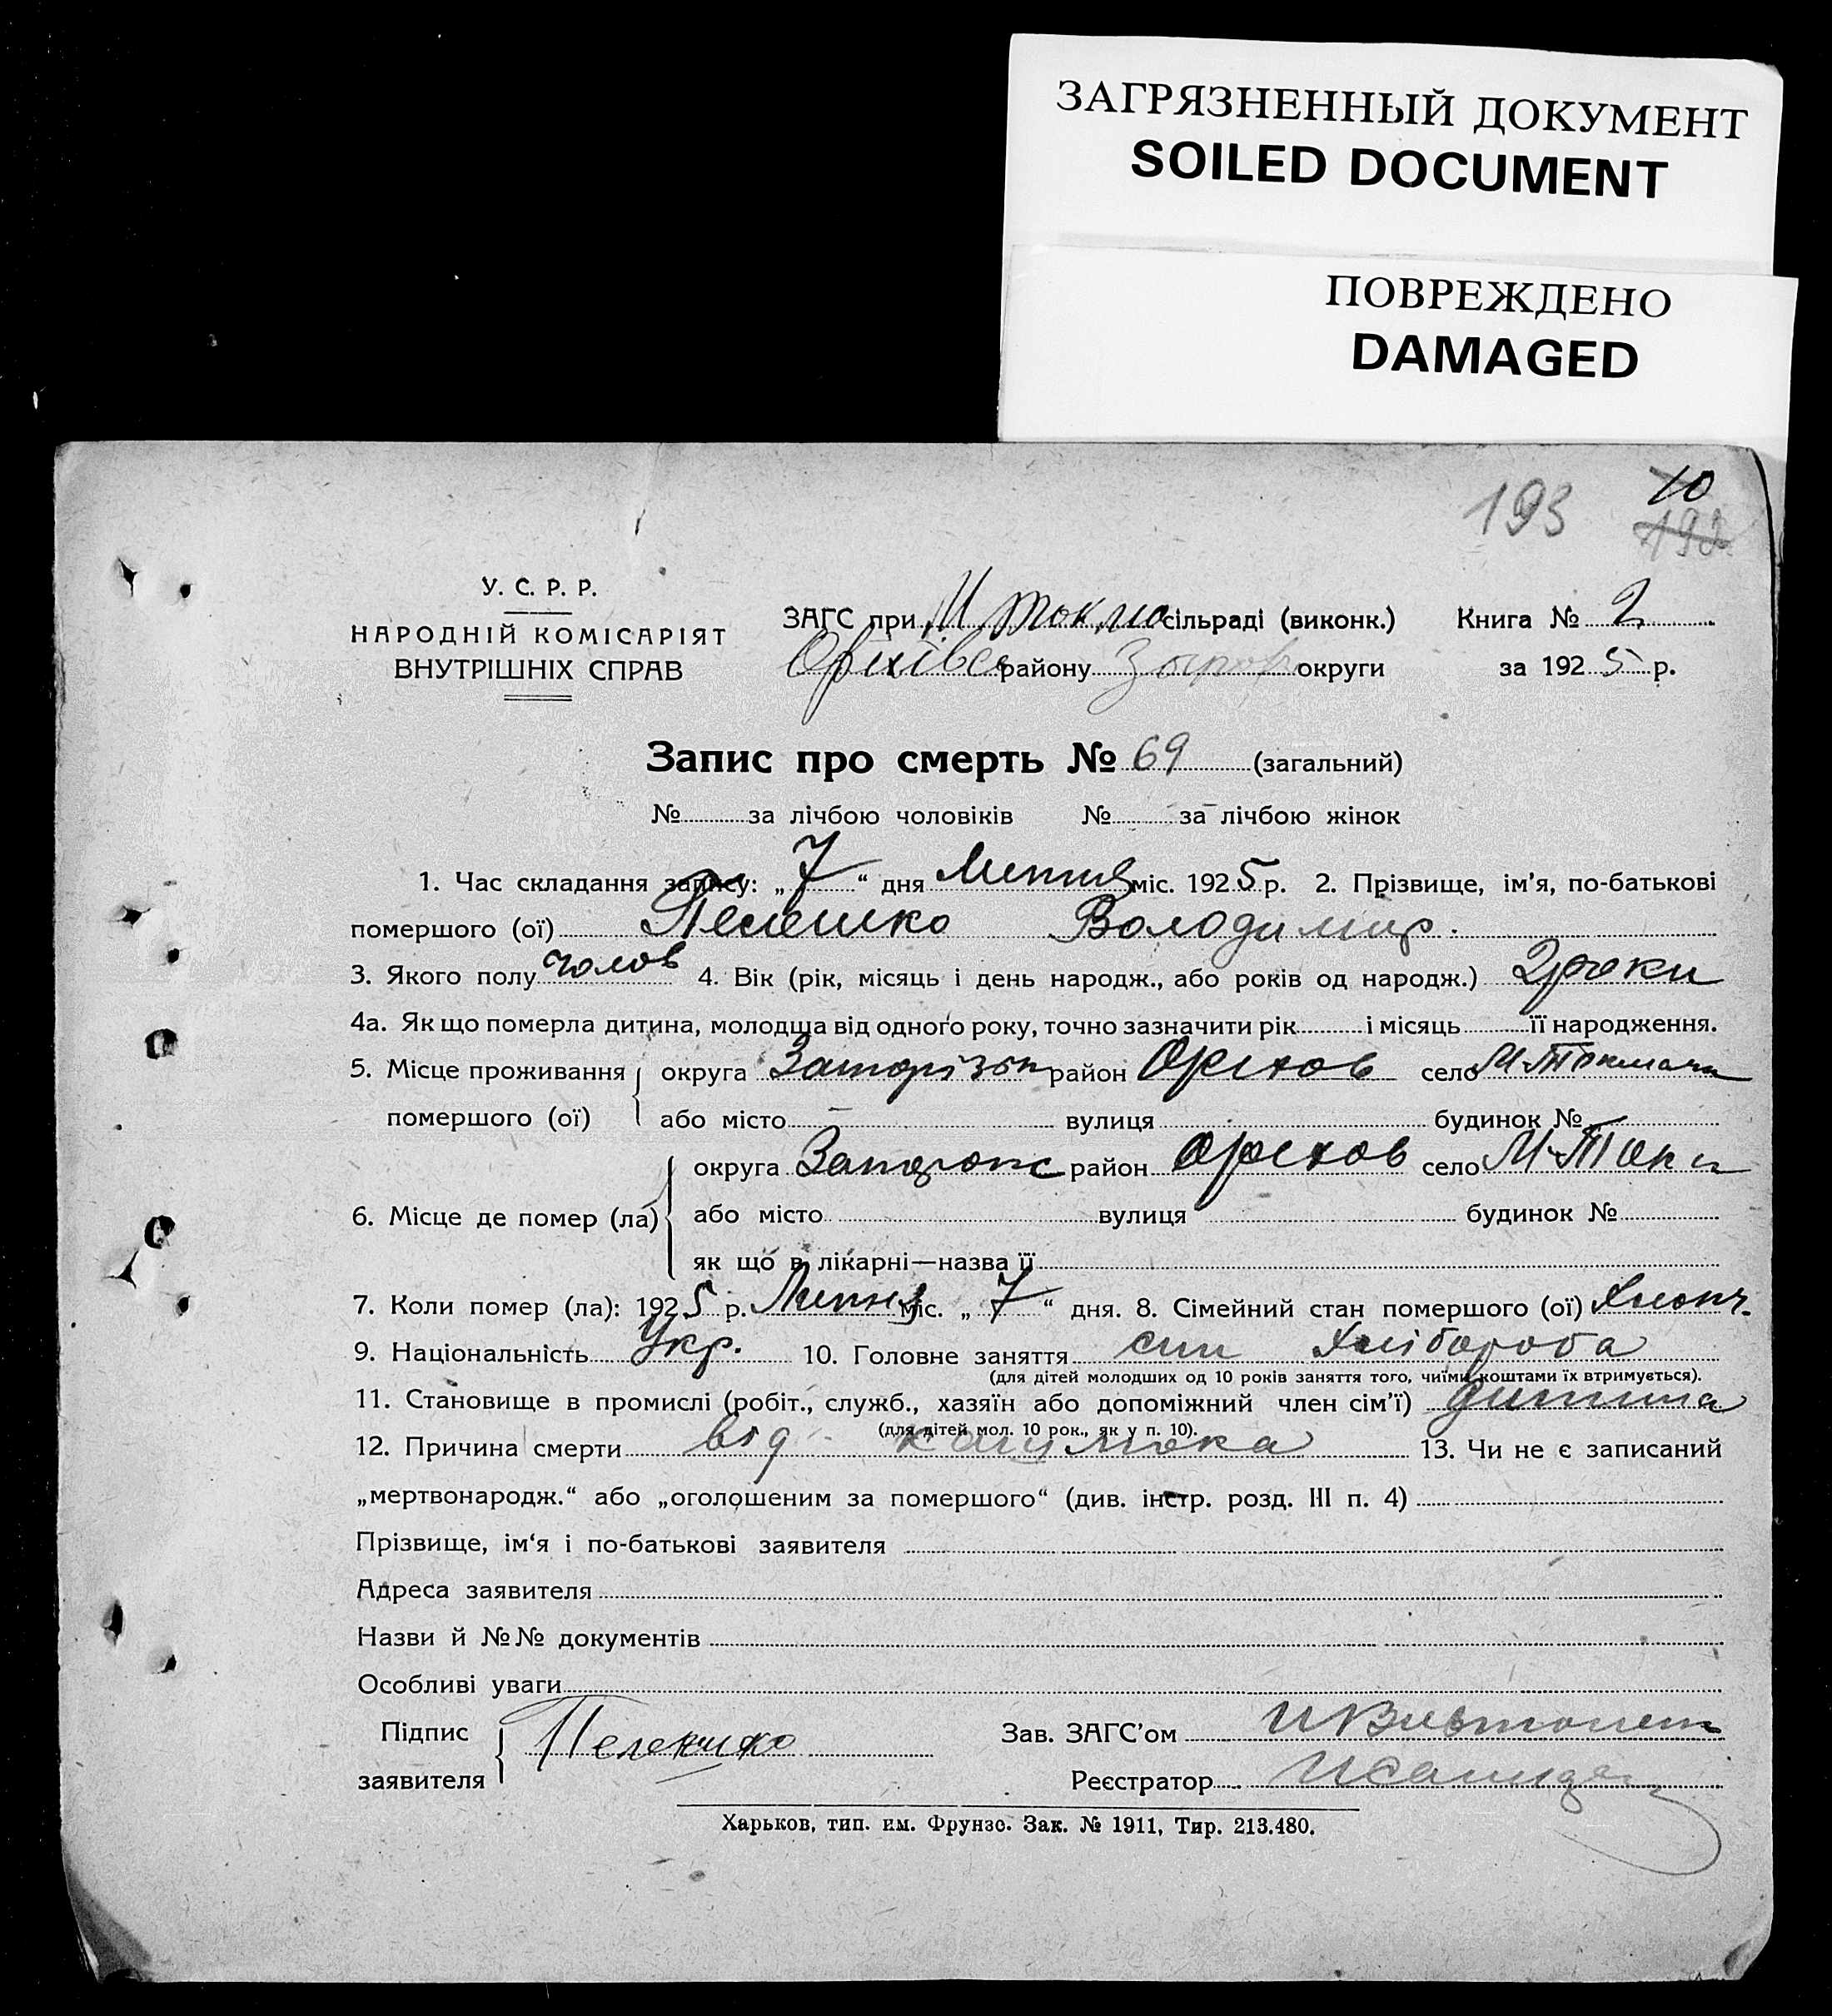 ЗАГРЯЗНЕННЫЙ ДОКУМЕНТ
SOILED DOCUMENT
ПОВРЕЖДЕНО
DAMAGED
193 10
192
У. С. Р. Р.
НАРОДНІЙ КОМІСАРІЯТ
ВНУТРІШНІХ СПРАВ
ЗАГС при М Токма сільраді (виконк.) Книга № 2
Оріхівс району округи за 1925 р.
Запис про смерть № 69 (загальний)
№ за лічбою чоловіків № за лічбою жінок
1. Час складання запису: „7“ дня Липня міс. 1925 р. 2. Прізвище, ім'я, по-батькові
помершого (ої) Пелешко Володимир.
3. Якого полу чолов 4. Вік (рік, місяць і день народж., або років од народж.) 2 роки
4а. Як що померла дитина, молодша від одного року, точно зазначити рік і місяць її народження.
5. Місце проживання округа Запорізьк район Орехов село М-Токмачк
помершого (ої) або місто вулиця будинок №
округа Запорожс район Орехов село М-Ток
6. Місце де помер (ла) або місто вулиця будинок №
як що в лікарні—назва її
7. Коли помер (ла): 1925 р. Липня міс. „7“ дня. 8. Сімейний стан помершого (ої) Хлопч.
9. Національність Укр. 10. Головне заняття син Хлібороба
(для дітей молодших од 10 років заняття того, чиїми коштами їх втримується).
11. Становище в промислі (робіт., служб., хазяїн або допоміжний член сім'ї) дитина
(для дітей мол. 10 рок., як у п. 10).
12. Причина смерти від кашлюка 13. Чи не є записаний
„мертвонародж.“ або „оголошеним за помершого“ (див. інстр. розд. III п. 4)
Прізвище, ім'я і по-батькові заявителя
Адреса заявителя
Назви й №№ документів
Особливі уваги
Підпис
заявителя Пелешко
Зав. ЗАГС'ом
Реєстратор
Харьков, тип. им. Фрунзе. Зак. № 1911, Тир. 213.480.